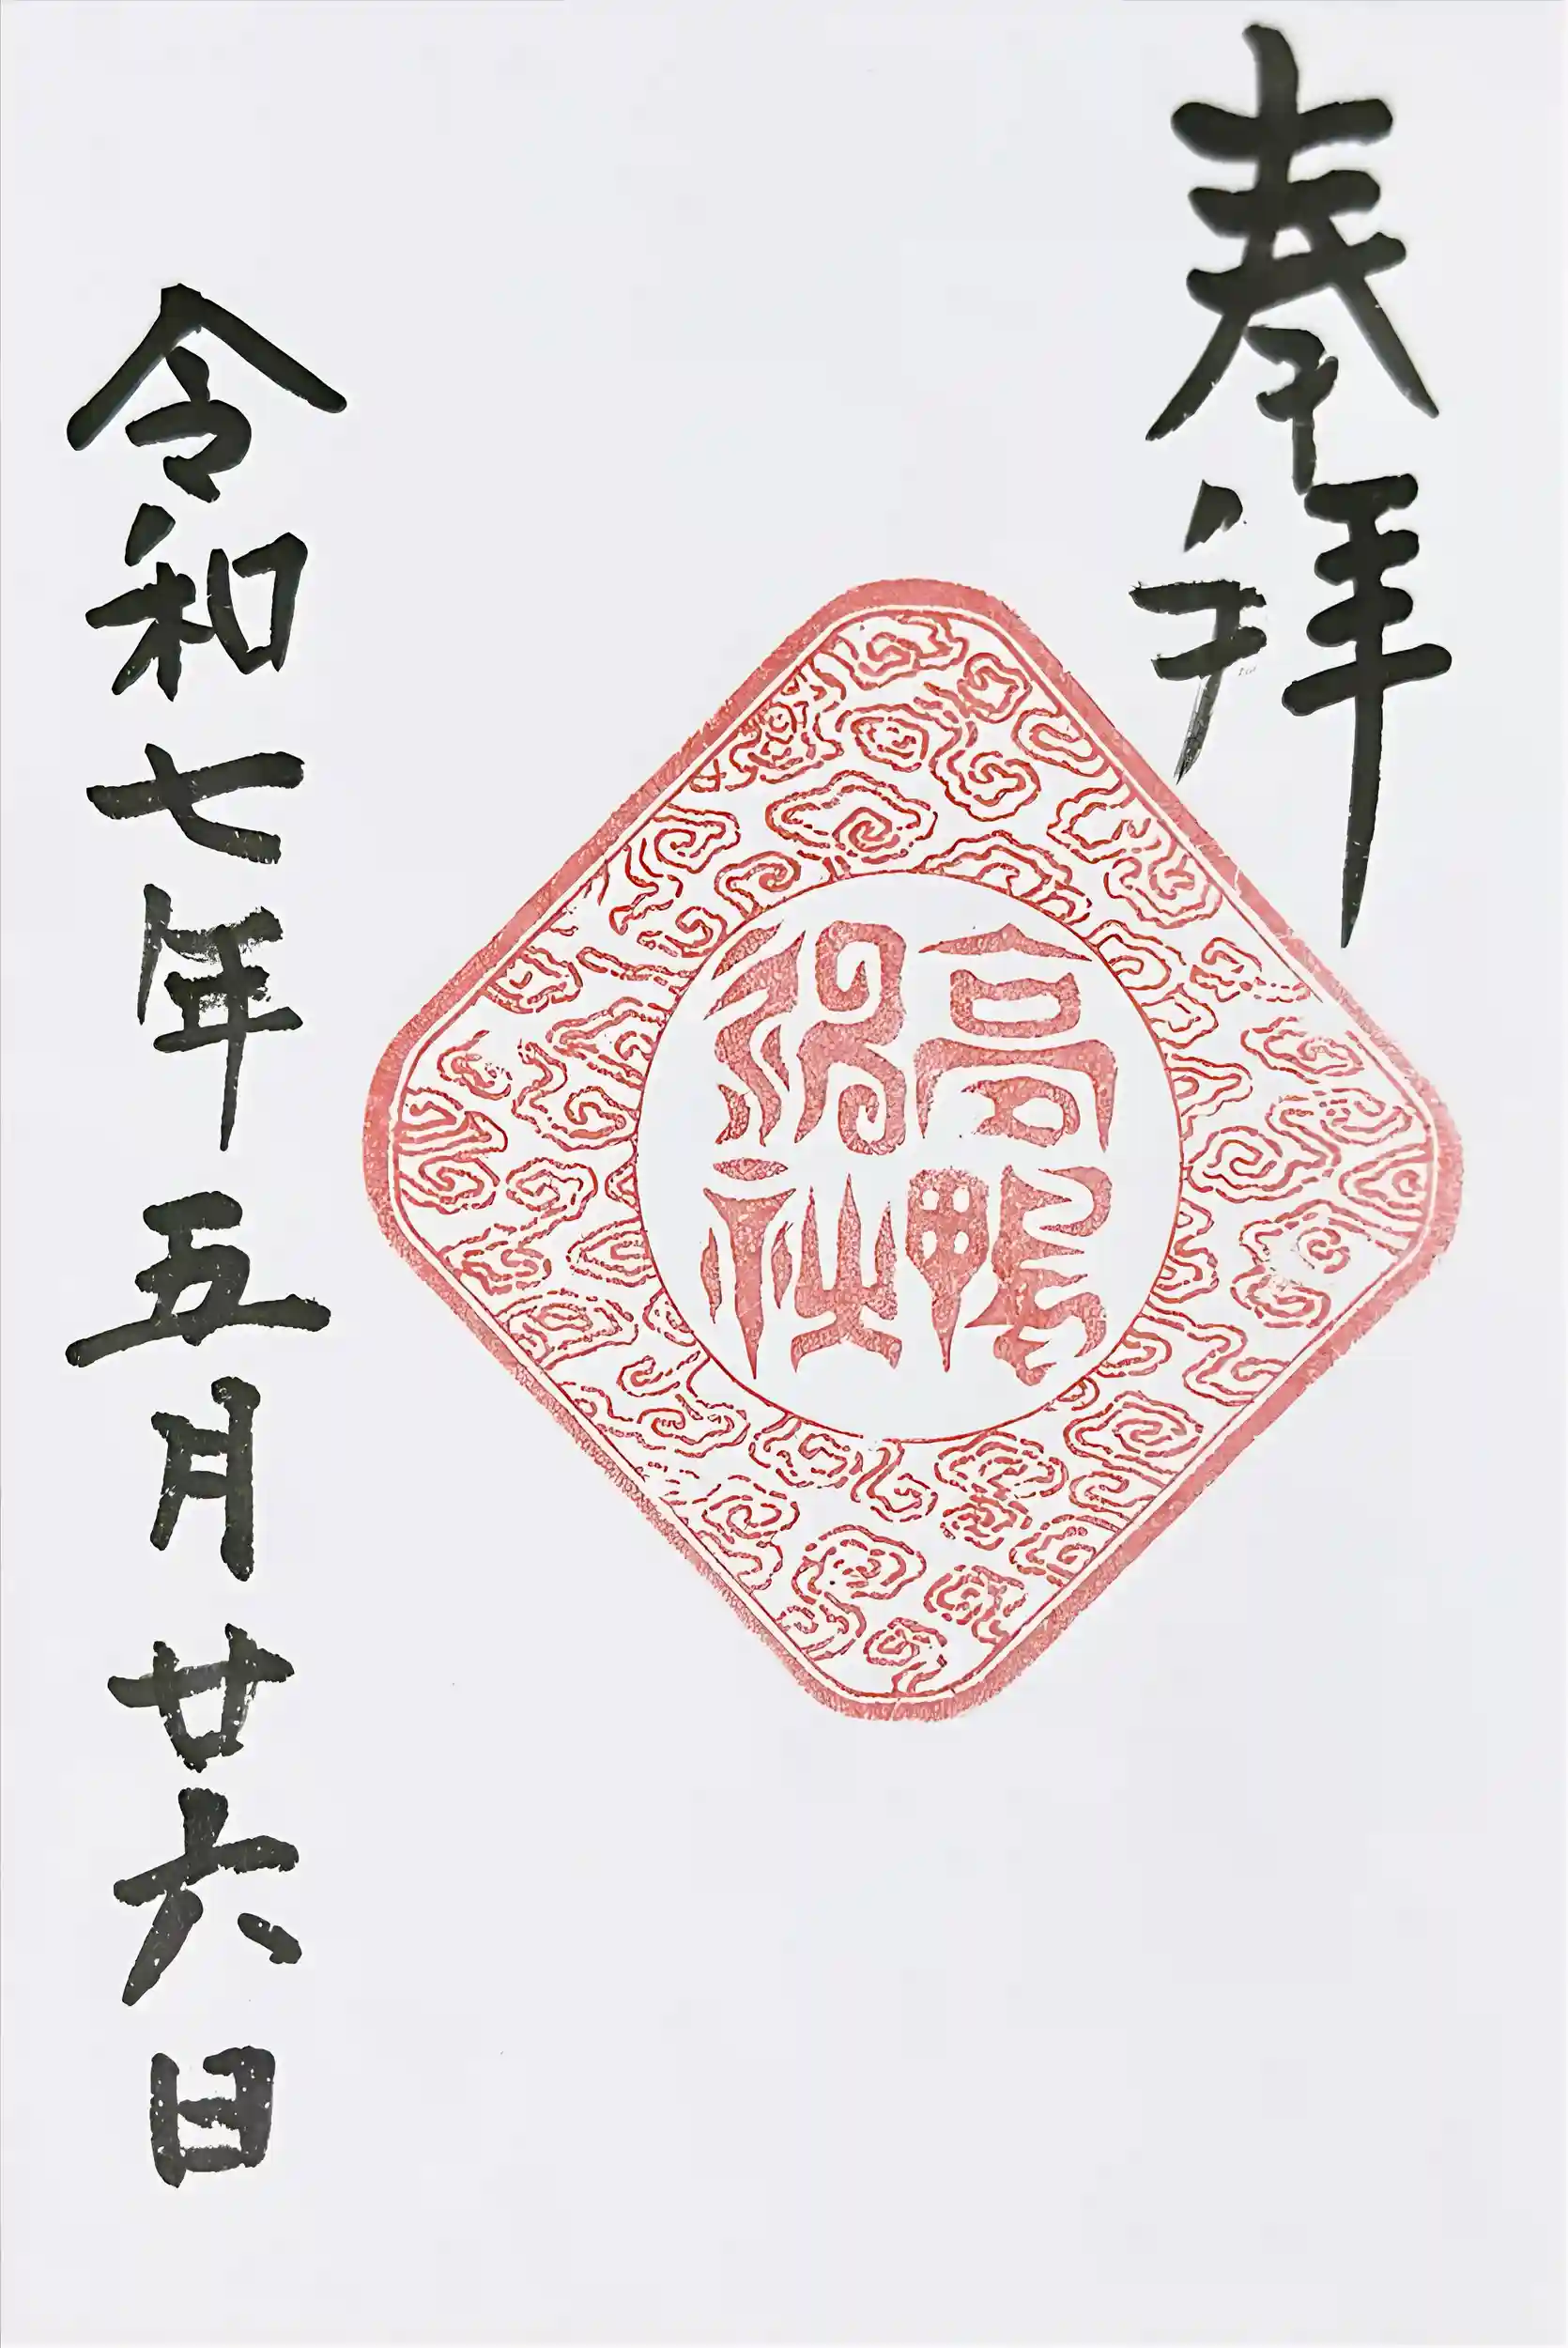 奉拝
高鴨
神社
令和七年五月廿六日